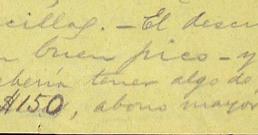 cillas. – El descu
buen pico – y
bería tener algo de
$150, abono mayor